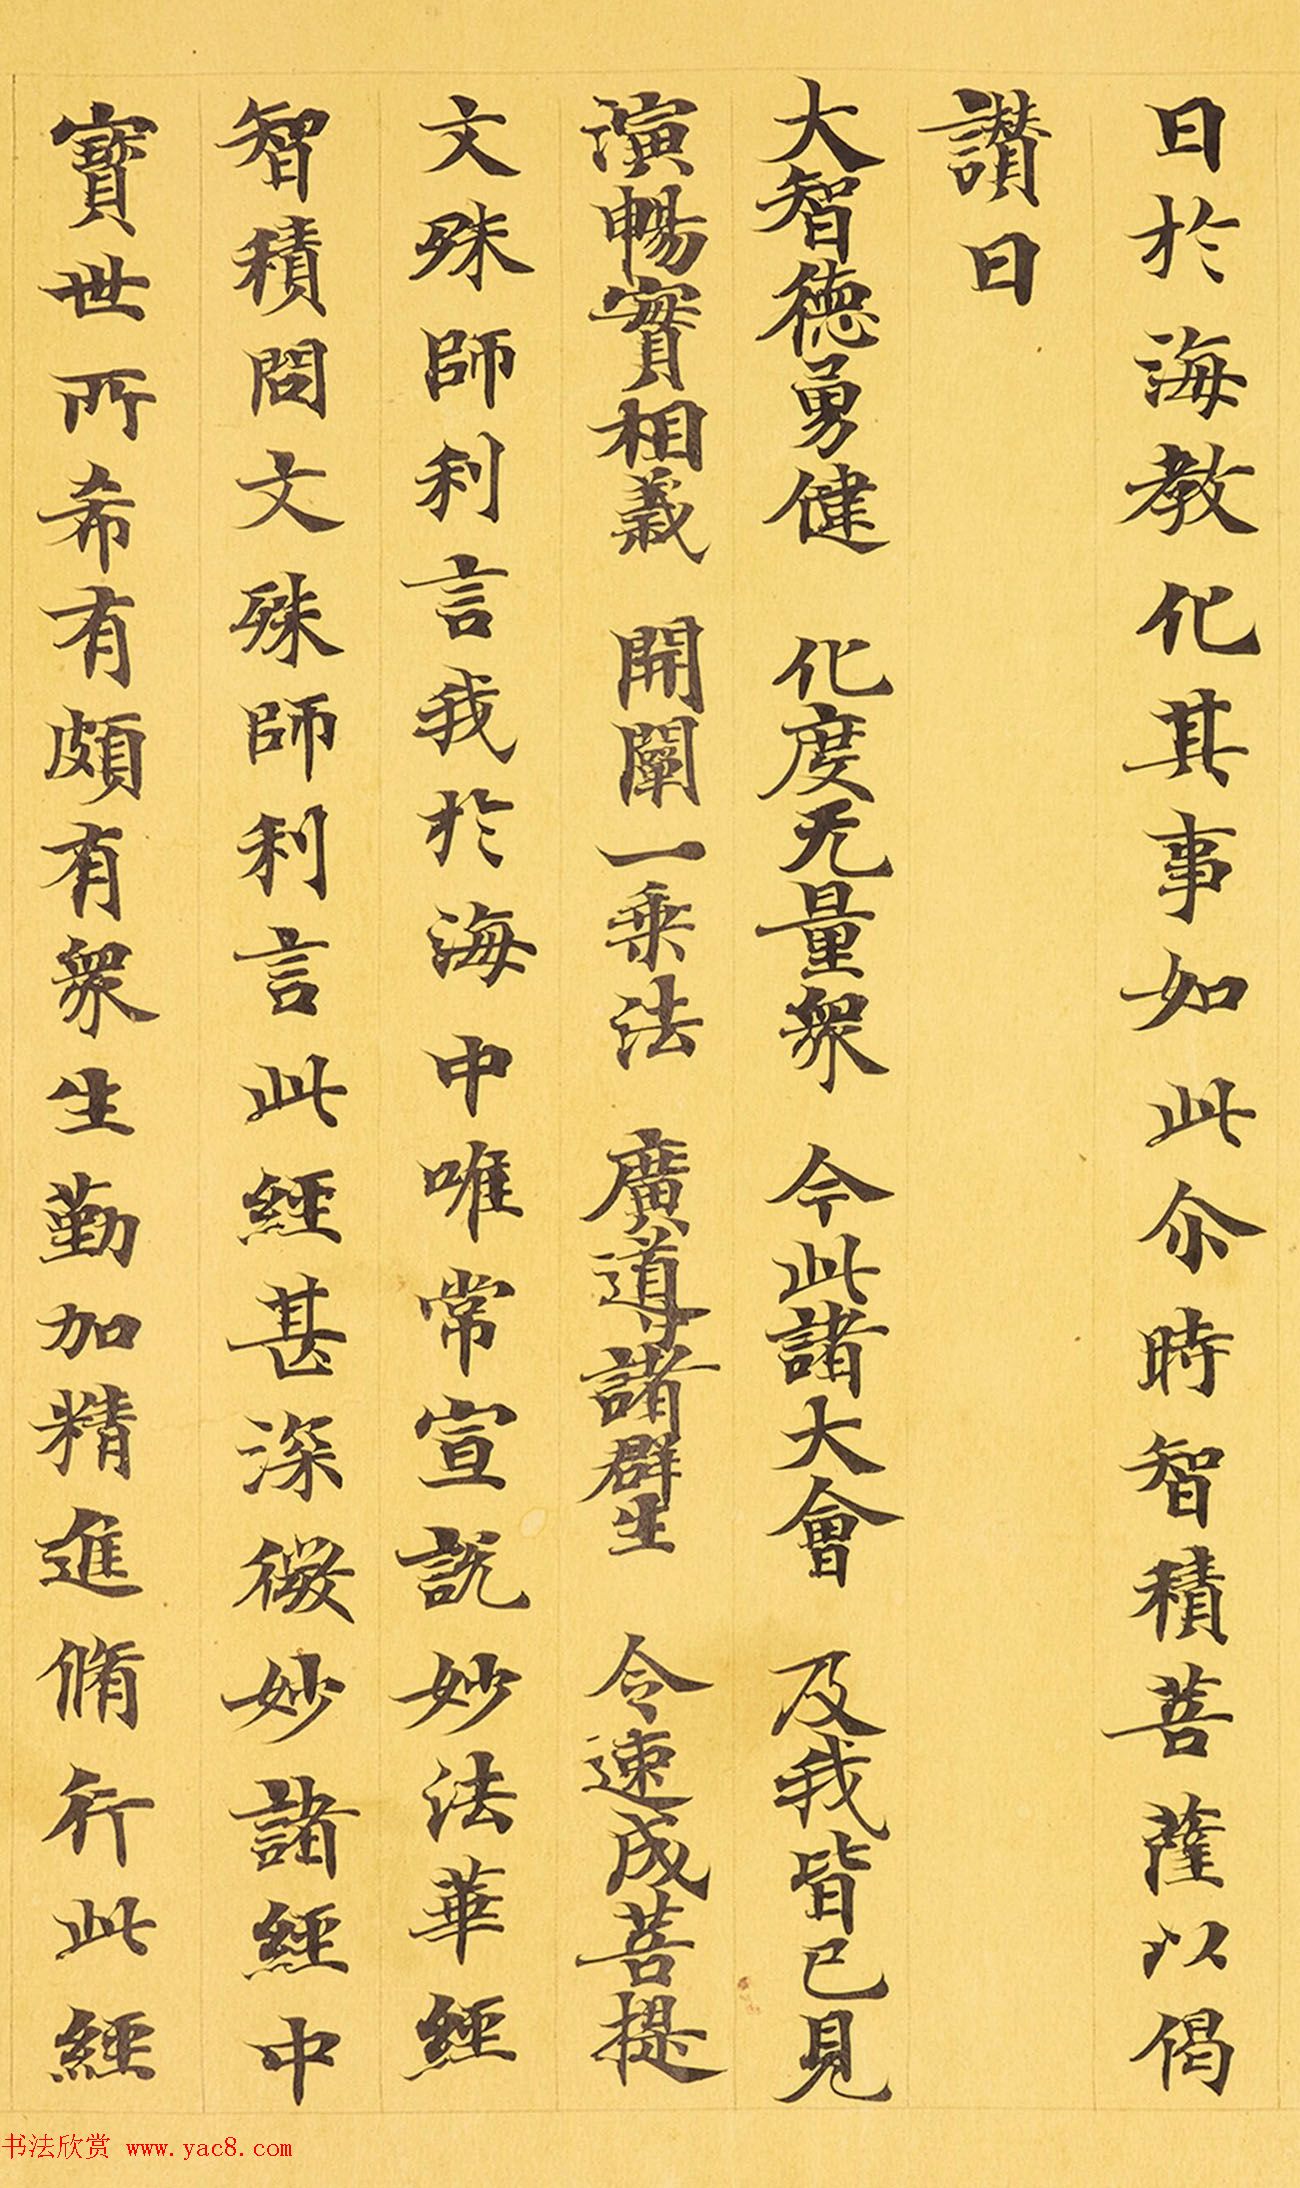 曰於海教化其事如此尒時智積菩薩以偈
讃曰
大智德勇健 化度无量衆 今此諸大會 及我皆已見
演暢實相義 開闡一乗法 廣導諸群生 令速成菩提
文殊師利言我於海中唯常宣説妙法華經
智積問文殊師利言此經甚深微妙諸經中
寶世所希有頗有衆生勤加精進脩行此經
书法欣赏 www.yac8.com